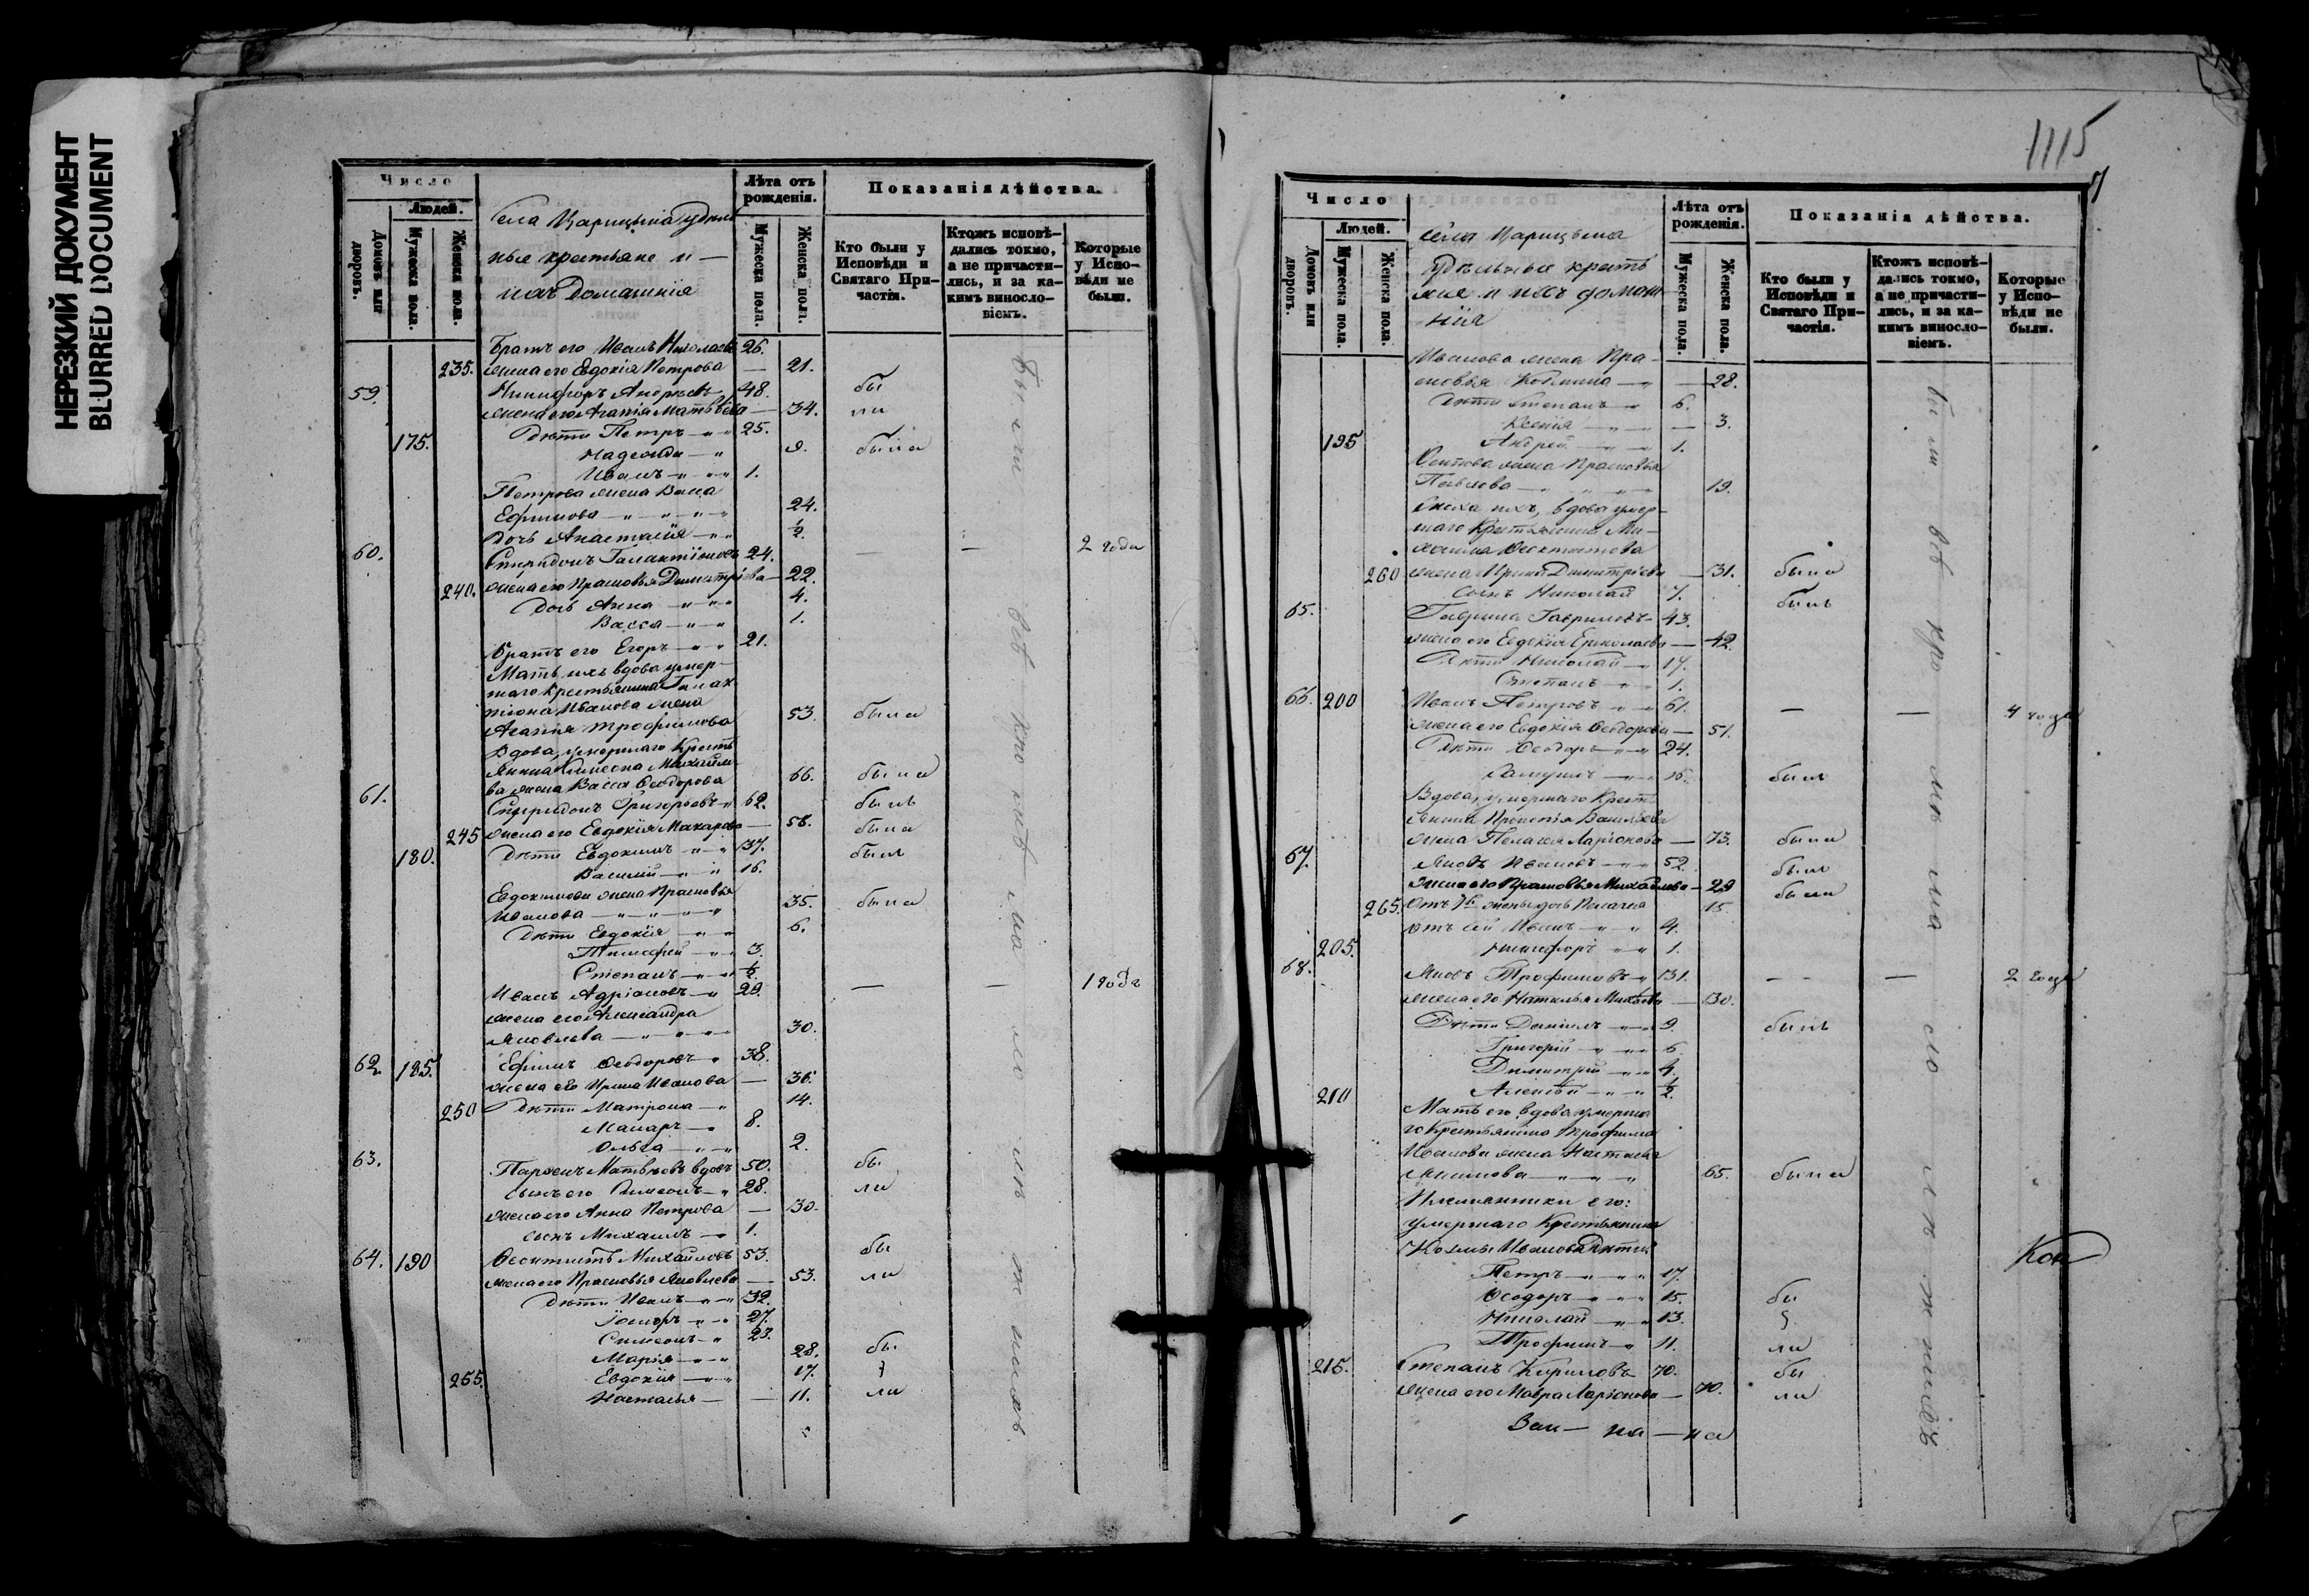 НЕРЕЗКИЙ ДОКУМЕНТ
BLURRED DOCUMENT
Число
Людей.
Домовъ или дворовъ.
Мужеска пола.
Женска пола.
Села Царицына удѣль
ные крестьяне и
ихъ домашнія
Лѣта отъ рожденія.
Мужеска пола.
Женска пола.
Показанія дѣйства.
Кто были у Исповѣди и Святаго Причастія.
Ктожъ исповѣдались токмо, а не причастились, и за какимъ винословіемъ.
Которые у Исповѣди не были.
Братъ его Иванъ Николаевъ 26.
235. жена его Евдокія Петрова — 21.
59. Никифоръ Андреевъ 48. бы
жена его Агапія Матвѣева — 34. ли
175. Дѣти Петръ 25.
Надежда 9. была
Иванъ 1.
Петрова жена Васса
Ефимова 24.
Дочь Анастасія ½.
60. Спиридонъ Галактіоновъ 24. — — 2 года
240. жена его Прасковья Димитріева — 22.
Дочь Анна 4.
Васса 1.
Братъ его Егоръ 21.
Мать ихъ вдова умер-
шаго крестьянина Галак
тіона Иванова жена
Агапія Трофимова 53. была
Вдова, умершаго Кресть
янина Алексѣя Михайло
ва жена Васса Ѳеодорова 66. была
61. Спиридонъ Григорьевъ 62. былъ
245 жена его Евдокія Макарова — 58. была
180. Дѣти Евдокимъ 37. былъ
Василій 16.
Евдокимова жена Прасковья
Иванова 35. была
Дѣти Евдокія 6.
Тимофей 3.
Степанъ ½.
Иванъ Адріановъ 29. — — 1 годъ
жена его Александра
Яковлева 30.
62. 185. Ефимъ Ѳеодоровъ 38.
жена его Ирина Иванова — 36.
250 Дѣти Матрона 14.
Макаръ 8.
Ольга 2.
63. Парѳенъ Матвѣевъ вдовъ 50. бы
сынъ его Симеонъ 28. ли
жена его Анна Петрова — 30.
сынъ Михаилъ 1.
64. 190 Ѳеоктистъ Михайловъ 53. бы
жена его Прасковья Яковлева — 53. ли
Дѣти Иванъ 32.
Іосифъ 27.
Симеонъ 23.
Марія 28. бы
255. Евдокія 17.
Наталья — 11. ли
1115
Число
Людей.
Домовъ или дворовъ.
Мужеска пола.
Женска пола.
села Царицына
удѣльные кресть
яне и ихъ домаш
нія
Лѣта отъ рожденія.
Мужеска пола.
Женска пола.
Показанія дѣйства.
Кто были у Исповѣди и Святаго Причастія.
Ктожъ исповѣдались токмо, а не причастились, и за какимъ винословіемъ.
Которые у Исповѣди не были.
Иванова жена Пра-
сковья — 28.
Дѣти Степанъ 6.
Ксенія — 3.
195 Андрей 1.
жена Прасковья
Павлова 19.
Сноха ихъ, вдова умер-
шаго Крестьянина Ми-
хаила Ѳеоктистова
260 жена Ирина Димитріева — 31. была
Сынъ Николай 7. былъ
65. Гаврила Гавриловъ 43.
жена его Евдокія Ермолаева — 42.
Дѣти Николай 17.
Степанъ 1.
66. 200 Иванъ Петровъ 61. — — 4 года
жена его Евдокія Ѳеодорова — 51.
Дѣти Ѳеодоръ 24.
16. былъ
Вдова, умершаго Кресть
янина Васильева
жена Пелагея Ларіонова — 73. была
67. Яковъ Ивановъ 52. былъ
жена его Прасковья Михайлова — 29 была
265. Отъ 1й жены дочь Пелагея 15.
отъ сей Иванъ 4.
205. Никифоръ 1.
68. Яковъ Трофимовъ 31. — — 2 года
жена его Наталья — 30.
Дѣти Даніилъ 9. былъ
Григорій 6.
Димитрій 4.
210 Алексѣй ½.
Мать его, вдова умерша
го Крестьянина Трофима
Иванова жена Наталья
65. была
Племянники его:
умершаго Крестьянина
Козьмы Иванова Дѣти:
Петръ 17.
Ѳеодоръ 15. бы
Николай 13.
Трофимъ 11. ли
215. Степанъ Кириловъ 70. бы
жена его Мавра Ларіонова — 70. ли